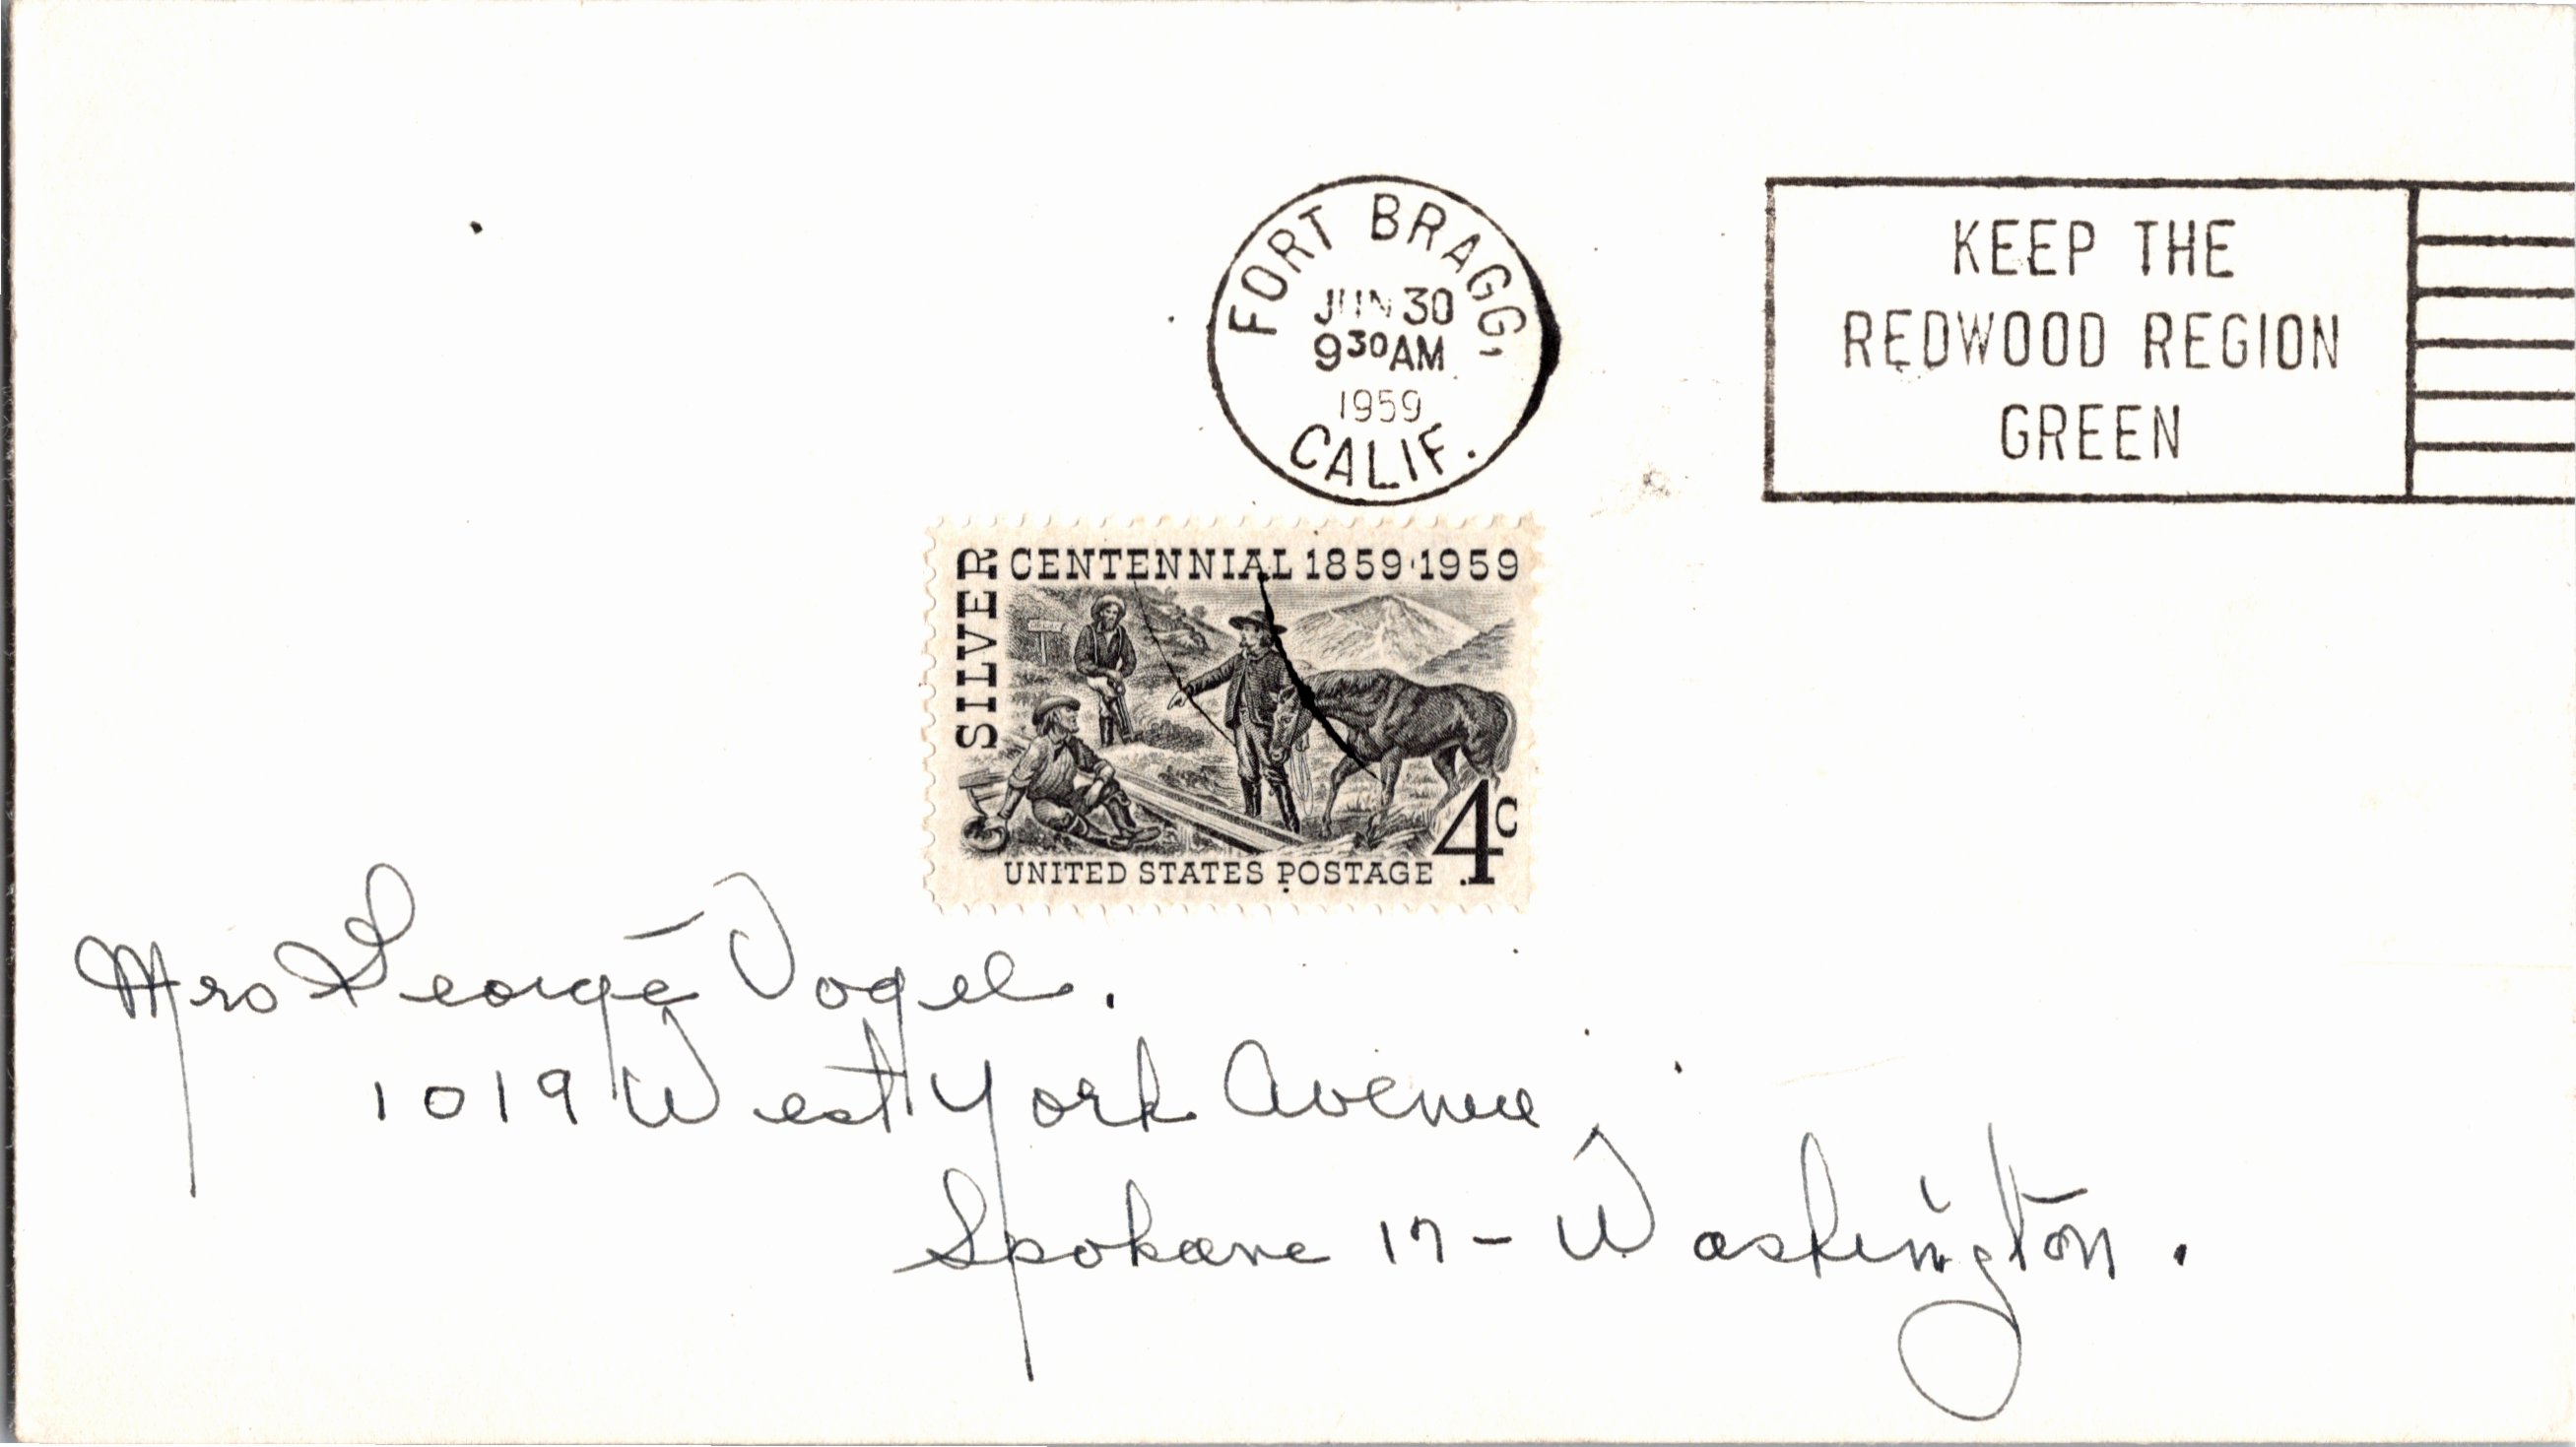 FORT BRAGG,
JUN 30
9 30 AM
1959
CALIF.
KEEP THE
REDWOOD REGION
GREEN
SILVER
CENTENNIAL 1859·1959
4c
UNITED STATES POSTAGE
Mrs George Vogel.
1019 West York Avenue
Spokane 17 - Washington.